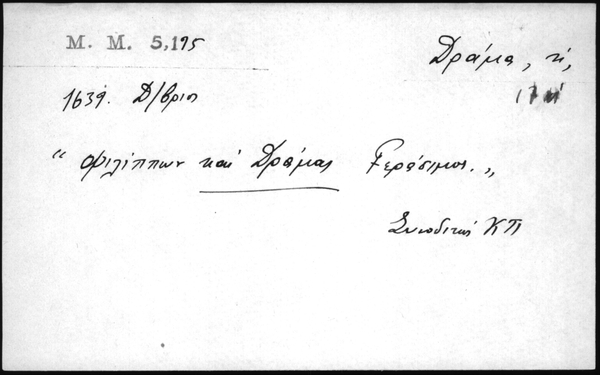 M. M. 5,175
Δράμα, ἡ,
1639. Δ/βριο
“ Φιλίππων καὶ Δράμας Γεράσιμος. „
Συνοδικὸς ΚΠ